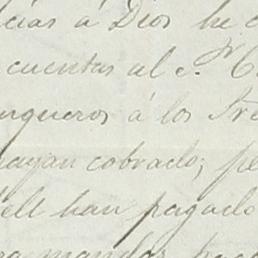 cias á Dios he c
cuentas al Sr. C
nqueros á los Sre
hayan cobrado; pe
ell han pagado
ra mandar